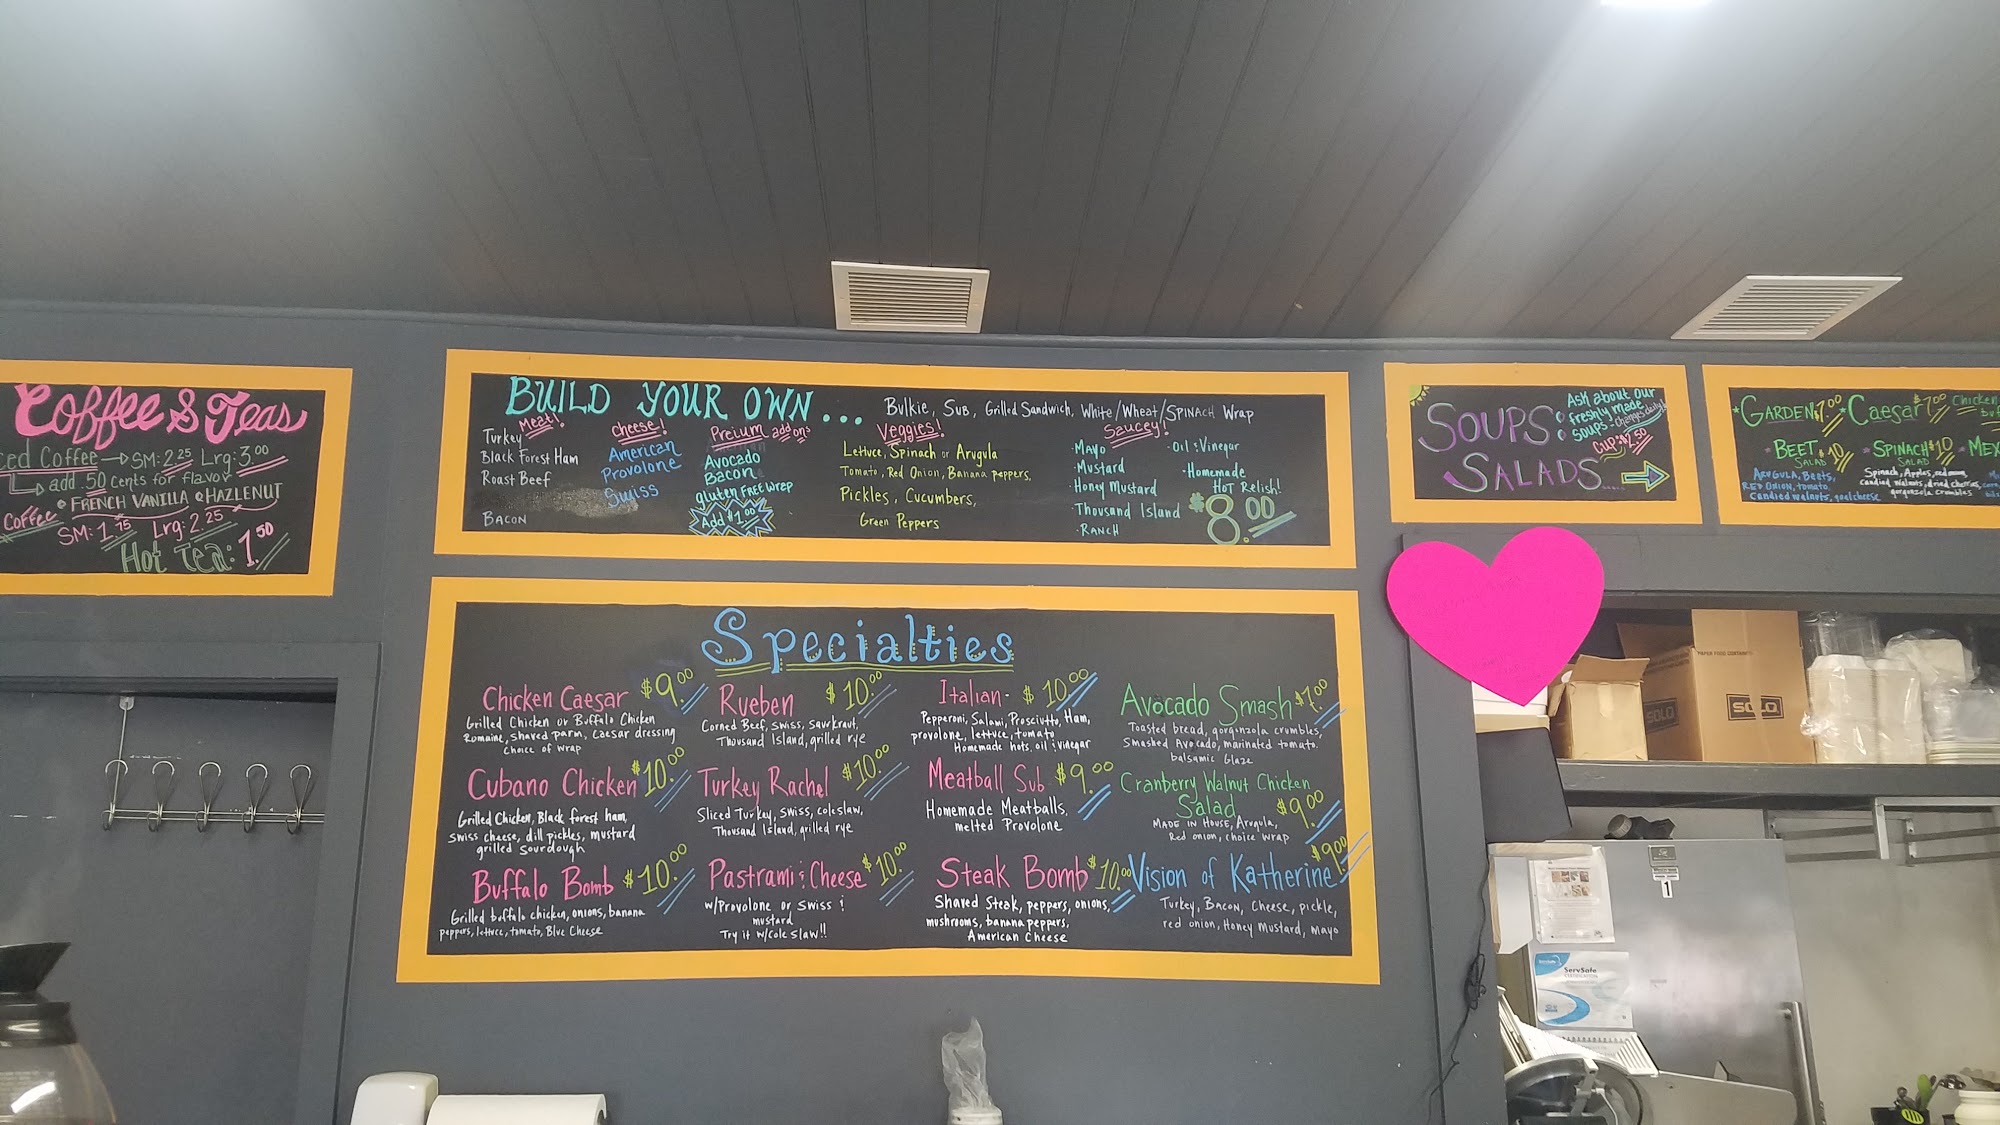 Coffee & Teas
ced Coffee SM: 2.25 Lrg: 3.00
add .50 cents for flavor
FRENCH VANILLA HAZLENUT
Coffee
SM: 1.75 Lrg: 2.25
Hot Tea: 1.50
BUILD YOUR OWN...
Bulkie, Sub, Grilled Sandwich, White/Wheat/SPINACH Wrap
Meat!
Turkey
Black Forest Ham
Roast Beef
BACON
Cheese!
American
Provolone
Swiss
Preium add ons
Avocado
Bacon
gluten FREE wrap
Add $1.00
Veggies!
Lettuce, Spinach or Arugula
Tomato, Red Onion, Banana peppers,
Pickles, Cucumbers,
Green Peppers
Saucey!
·Mayo
·Mustard
·Honey Mustard
·Thousand Island
·RANCH
·Oil & Vinegar
·Homemade
Hot Relish!
$8.00
SOUPS &
SALADS....
Ask about our
freshly made
soups! Changes daily!
Cup: $2.50
GARDEN $7.00
Caesar $7.00
Chicken
BEET $10
SALAD
ARUGULA, Beets,
RED ONION, tomato,
Candied walnuts, goat cheese
SPINACH $10
SALAD
Spinach, Apples, red onion,
candied walnuts, dried cherries,
gorgonzola crumbles
MEX
Specialties
Chicken Caesar $9.00
Grilled Chicken or Buffalo Chicken
Romaine, shaved parm, Caesar dressing
choice of wrap
Cubano Chicken $10.00
Grilled Chicken, Black forest ham,
swiss cheese, dill pickles, mustard
grilled sourdough
Buffalo Bomb $10.00
Grilled buffalo chicken, onions, banana
peppers, lettuce, tomato, Blue Cheese
Rueben $10.00
Corned Beef, swiss, saurkraut,
Thousand Island, grilled rye
Turkey Rachel $10.00
Sliced Turkey, swiss, coleslaw,
Thousand Island, grilled rye
Pastrami & Cheese $10.00
w/Provolone or Swiss &
mustard
Try it w/cole slaw!!
Italian- $10.00
Pepperoni, Salami, Prosciutto, Ham,
provolone, lettuce, tomato
Homemade hots, oil & vinegar
Meatball Sub $9.00
Homemade Meatballs,
melted Provolone
Steak Bomb $10.00
Shaved Steak, peppers, onions,
mushrooms, banana peppers,
American Cheese
Avocado Smash $7.00
Toasted bread, gorgonzola crumbles,
Smashed Avocado, marinated tomato.
balsamic Glaze
Cranberry Walnut Chicken
Salad $9.00
MADE IN HOUSE, Arugula,
Red onion, choice wrap
Vision of Katherine $9.00
Turkey, Bacon, Cheese, pickle,
red onion, Honey Mustard, mayo
PAPER FOOD CONTAINERS
SOLO
SOLO
1
ServSafe
CERTIFICATION